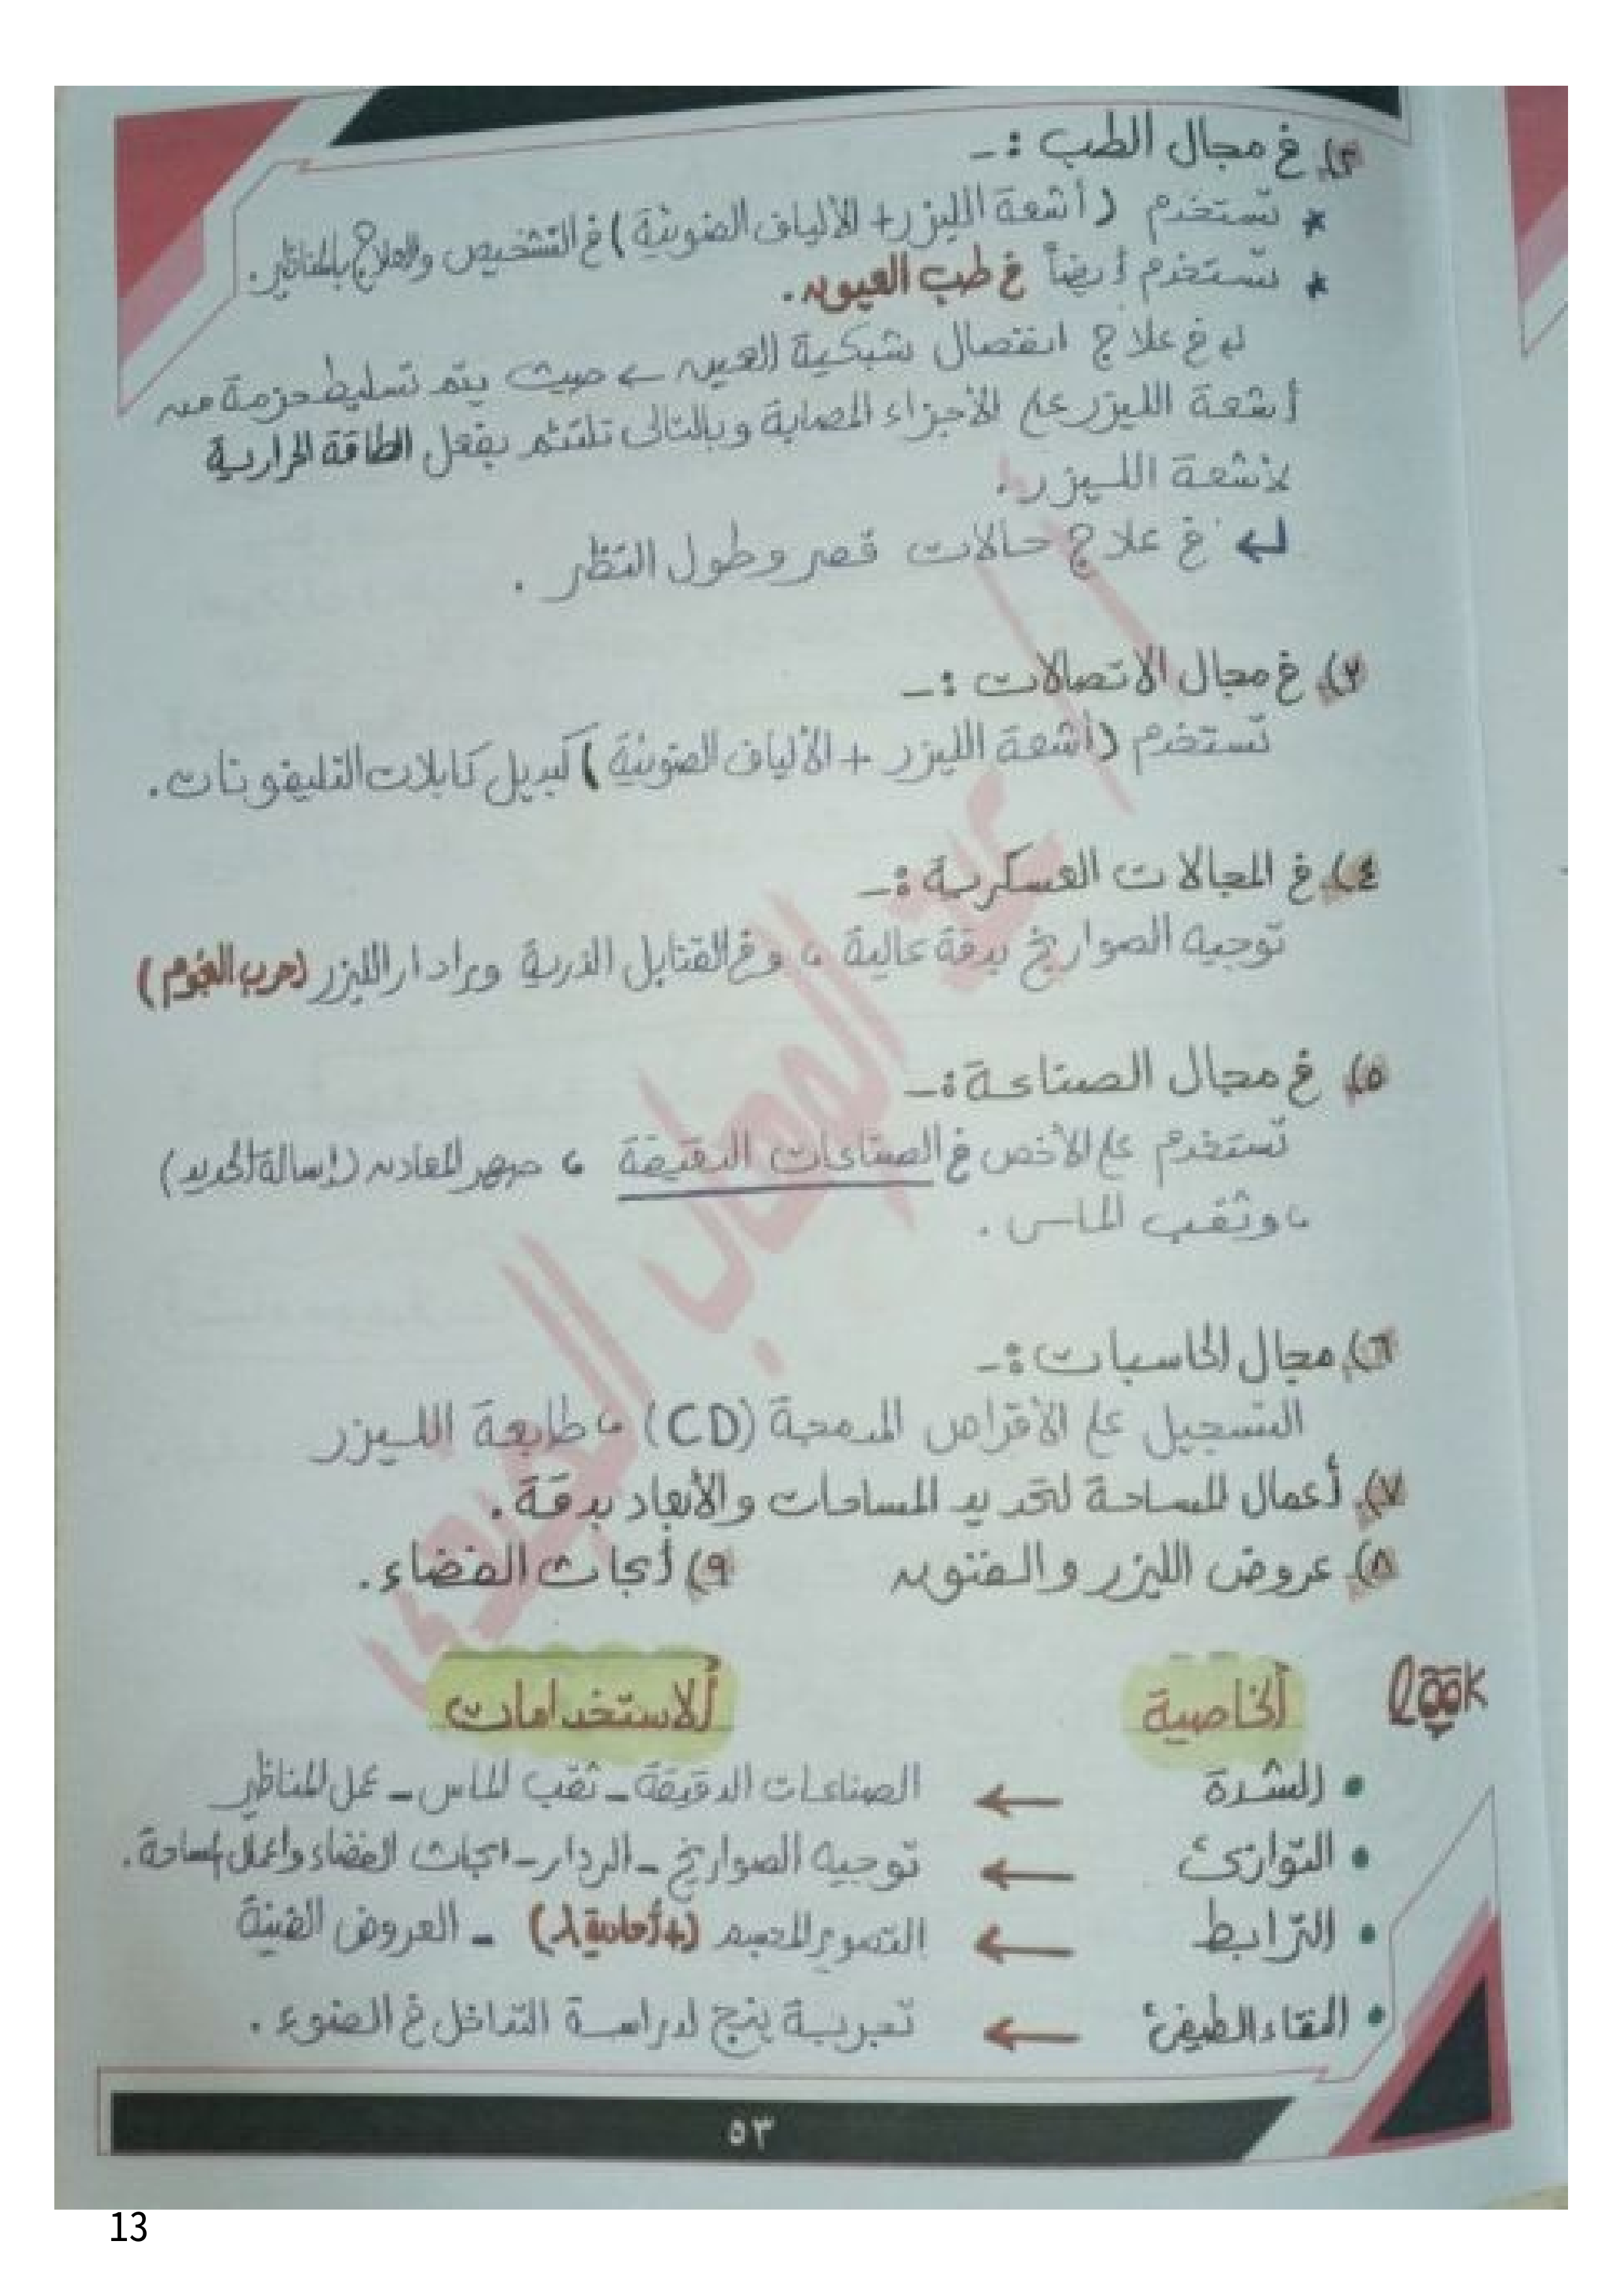 ٢) في مجال الطب :-
* تستخدم (أشعة الليزر + الألياف الضوئية) في التشخيص والعلاج بالمناظير.
* تستخدم أيضاً في طب العيون.
في علاج انفصال شبكية العين ← حيث يتم تسليط حزمة من
أشعة الليزر على الأجزاء المصابة وبالتالى تلتئم بفعل الطاقة الحرارية
لأشعة الليزر.
في علاج حالات قصر وطول النظر .
٣) في مجال الاتصالات :-
تستخدم (أشعة الليزر + الألياف الضوئية) كبديل كابلات التليفونات.
٤) في المجالات العسكرية :-
توجيه الصواريخ بدقة عالية ، وفي القنابل الذرية ورادار الليزر (حرب النجوم)
٥) في مجال الصناعة :-
تستخدم على الأخص في الصناعات الدقيقة ، صهر المعادن (إسالة الحديد)
، وثقب الماس .
٦) مجال الحاسبات :-
التسجيل على الأقراص المدمجة (CD) ، طابعة الليزر
٧) أعمال المساحة لتحديد المساحات والأبعاد بدقة .
٨) عروض الليزر والفنون ٩) أبحاث الفضاء .
look الخاصية الاستخدامات
• الشدة ← الصناعات الدقيقة - ثقب الماس - عمل المناظير
• التوازى ← توجيه الصواريخ - الردار - ابحاث الفضاء واعمال المساحة .
• الترابط ← التصوير المجسم (+ أحادية λ) - العروض الفنية
• النقاء الطيفى ← تجربة ينج لدراسة التداخل في الضوء .
٥٣
أ / عبد الوهاب
13